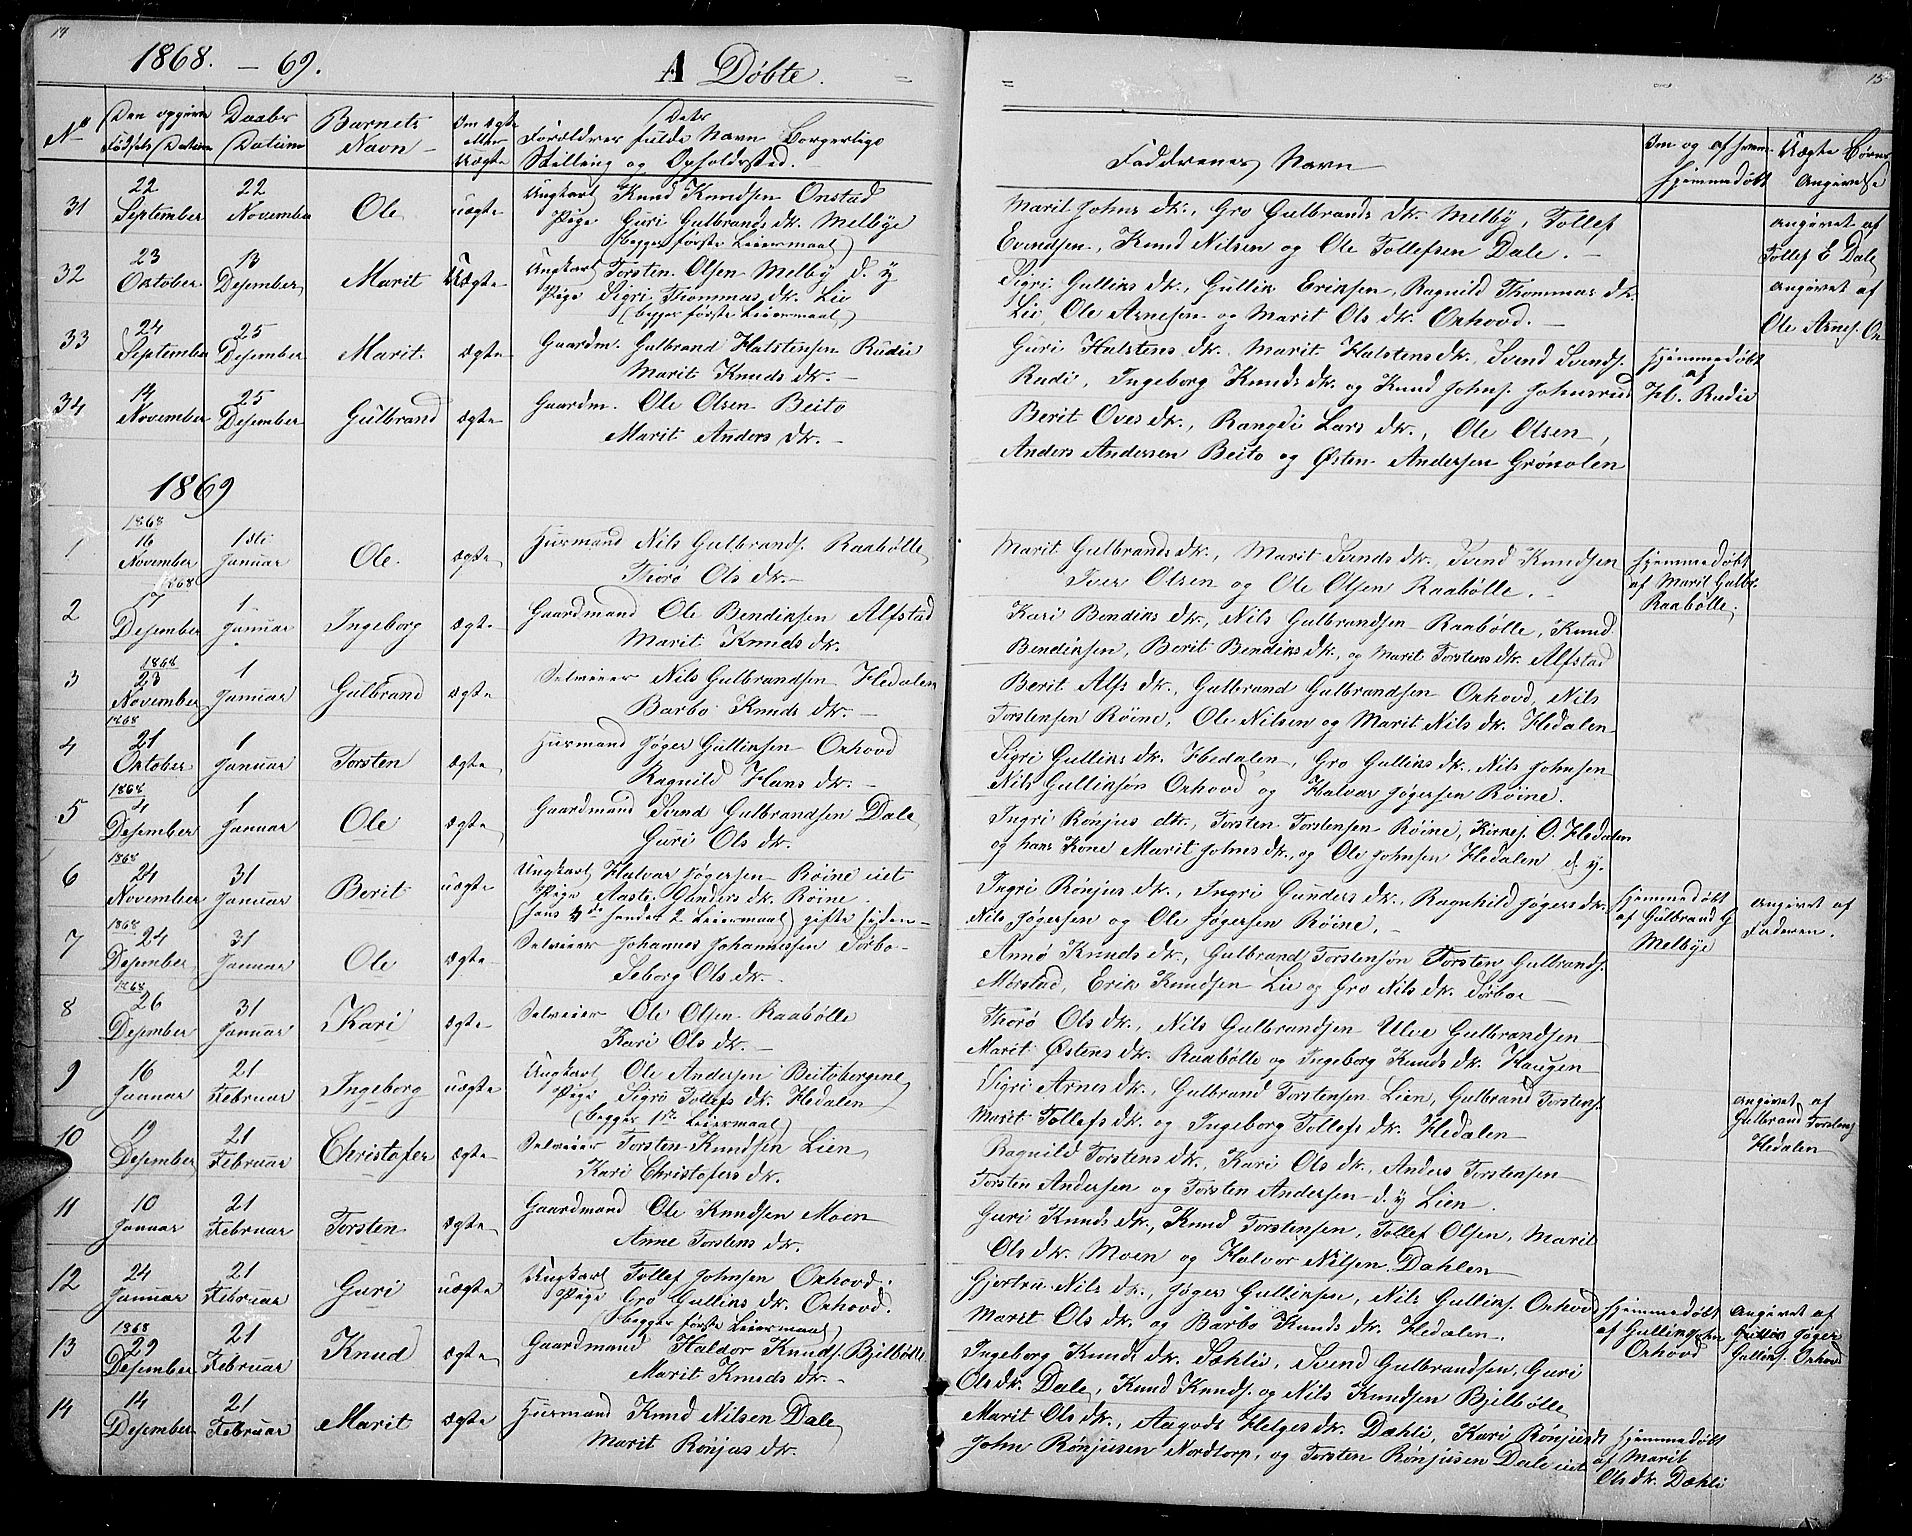 14
1868. - 69.
A Døbte.
15
No
Den opgivne Fødsels Datum
Daabs Datum
Barnets Navn
Om ægte eller Uægte
Forældres fulde Navn Borgerlige Stilling og Opholdssted.
Faddrenes Navn
Om og af hvem hjemmedøbt
Uægte Børns Angivelse
31
22 September
22 November
Ole
uægte
Ungkarl Knud Knudsen Onstad
Pige Guri Gulbrands dk. Melbye
(begges første Leiermaal)
Marit Johns dk., Gro Gulbrands dk. Melby, Tollef
Evindsen, Knud Nilsen og Ole Tollefsen Dale.
angivet af
Tollef E Dale
32
23 Oktober
13 Desember
Marit
Uægte
Ungkarl Torsten Olsen Melby d. y
Pige Sigri Thommas dk. Lie
(begges første Leiermaal)
Sigri Gulliks dk., Gullik Eriksen, Ragnild Thommas dk.
Lie, Ole Arnesen og Marit Ols dk. Onhovd.
angivet af
Ole Arnes. On
33
24 September
25 Desember
Marit
ægte
Gaardm. Gulbrand Halstensen Rudie
Marit Knuds dk.
Guri Halstens dk. Marit Halstens dk., Svend Svends.
Rudi, Ingeborg Knuds dk. og Knud Johns. Johnsrud
Hjemmedøbt
af
H. Rudie
34
14 November
25 Desember
Gulbrand
ægte
Gaardm. Ole Olsen Beito
Marit Anders dk.
Berit Oves dk., Rangdi Lars dk., Ole Olsen,
Anders Andersen Beito og Østen Andersen Grønolen
1869
1
1868
16 November
1ste Januar
Ole
ægte
Husmand Nils Gulbrands. Raabølle
Thorø Ols dk.
Marit Gulbrands dk., Marit Svends dk., Svend Knudsen
Iver Olsen og Ole Olsen Raabølle.
Hjemmedøbt
af Marit Gulb.
Raabølle,
2
1868
17 Desember
1 Januar
Ingeborg
ægte
Gaardmand Ole Bendiksen Alfstad
Marit Knuds dk.
Kari Bendiks dk., Nils Gulbrandsen Raabølle, Knud
Bendiksen, Berit Bendiks dk., og Marit Torstens dk. Alfstad
3
1868
23 November
1 Januar
Gulbrand
ægte
Selveier Nils Gulbrandsen Hedalen
Barbo Knuds dk.
Berit Alfs dk., Gulbrand Gulbrandsen Onhovd, Nils
Torstensen Røine, Ole Nilsen og Marit Nils dk. Hedalen
4
1868
21 Oktober
1 Januar
Torsten
ægte
Husmand Jøger Gulliksen Onhovd
Ragnild Hans dk.
Sigri Gulliks dk. Hedalen, Gro Gulliks dk., Nils Johnsen
Nils Gulliksøn Onhovd og Halvar Jøgersen Røine.
5
1868
4 Desember
1 Januar
Ole
ægte
Gaardmand Svend Gulbrandsen Dale
Guri Ols dk.
Ingri Rønjus dk., Torsten Torstensen Røine, Kirkes. O. Hedalen
og hans Kone Marit Johns dk., og Ole Johnsen Hedalen d. y.
6
1868
24 November
31 Januar
Berit
uægte
Ungkarl Halvar Jøgersen Røine eiet
Pige Aaste Gunders dk. Røine
(hans 4de hendes 2 Leiermaal) gifte siden
Ingri Rønjus dk., Ingri Gunders dk., Ragnhild Jøgers dk.
Nils Jøgersen og Ole Jøgersen Røine.
Hjemmedøbt
af Gulbrand G
Melbye
angivet af
Faderen.
7
1868
24 Desember
31 Januar
Ole
ægte
Selveier Johannes Johannessen Sørbo
Seborg Ols dk.
Annø Knuds dk., Gulbrand Torstensøn Torsten Gulbrands.
Mørstad, Erik Knudsen Lie og Gro Nils dk. Sørboe
8
1868
26 Desember
31 Januar
Kari
ægte
Selveier Ole Olsen Raabølle
Kari Ols dk.
Thorø Ols dk., Nils Gulbrandsen Ulve Gulbrandsen
Marit Østens dk. Raabølle og Ingeborg Knuds dk. Haugen
9
16 Januar
21 Februar
Ingeborg
uægte
Ungkarl Ole Andersen Beitobergene
Pige Sigrø Tollefs dk. Hedalen
(begges 1ste Leiermaal)
Sigri Arnes dk., Gulbrand Torstensen Lien, Gulbrand Torstens.
Marit Tollefs dk. og Ingeborg Tollefs dk. Hedalen
angivet af
Gulbrand Torstens.
Hedalen
10
19 Desember
21 Februar
Christofer
ægte
Selveier Torsten Knudsen Lien
Kari Christofers dk.
Ragnild Torstens dk., Kari Ols dk., Anders Torstensen
Torsten Andersen og Torsten Andersen d. y Lien.
11
10 Januar
21 Februar
Torsten
ægte
Gaardmand Ole Knudsen Moen
Anne Torstens dk.
Guri Knuds dk., Knud Torstensen, Tollef Olsen, Marit
Ols dk. Moen og Halvor Nilsen Dahlen
12
24 Januar
21 Februar
Guri
uægte
Ungkarl Tollef Johnsen Onhovd.
Pige Gro Gulliks dk. Onhovd.
(begges første Leiermaal)
Gjertru Nils dk., Jøger Gulliksen, Nils Gulliks. Onhovd
Marit Ols dk. og Barbo Knuds dk. Hedalen.
Hjemmedøbt
af Gullik
Onhovd
Angivet af
Gullik Jøger
Gulliks. Onhovd
13
1868
29 Desember
21 Februar
Knud
ægte
Gaardmand Haldor Knuds. Bjelbølle
Marit Knuds dk.
Ingeborg Knuds dk. Sæhlie, Svend Gulbrandsen, Guri
Ols dk. Dale, Knud Knuds. og Nils Knudsen Bjelbølle
14
14 Desember
21 Februar
Marit
ægte
Husmand Knud Nilsen Dale
Marit Rønjus dk.
Marit Ols dk., Aagodt Helges dk. Dæhli, Kari Rønjus dk
John Rønjusen Nordtorp, og Torsten Rønjusen Dale eiet
Hjemmedøbt
af Marit
Ols dk. Dæhli